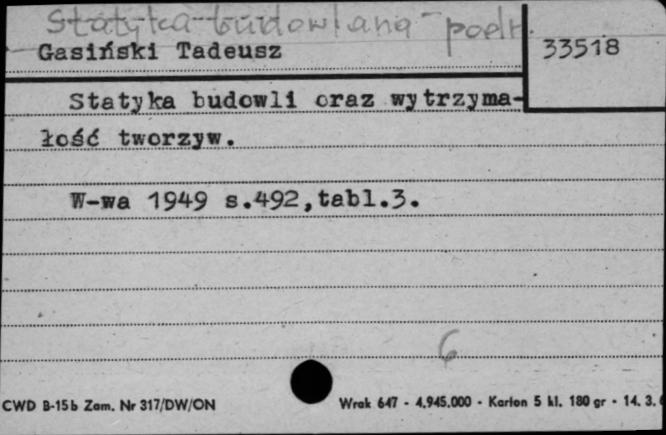 Statyka budowlana - podr.
Gasiński Tadeusz
33518
Statyka budowli oraz wytrzyma-
łość tworzyw.
W-wa 1949 s.492,tabl.3.
6
CWD B-15b Zam. Nr 317/DW/ON
Wrak 647 - 4.945.000 - Karton 5 kl. 180 gr - 14. 3.